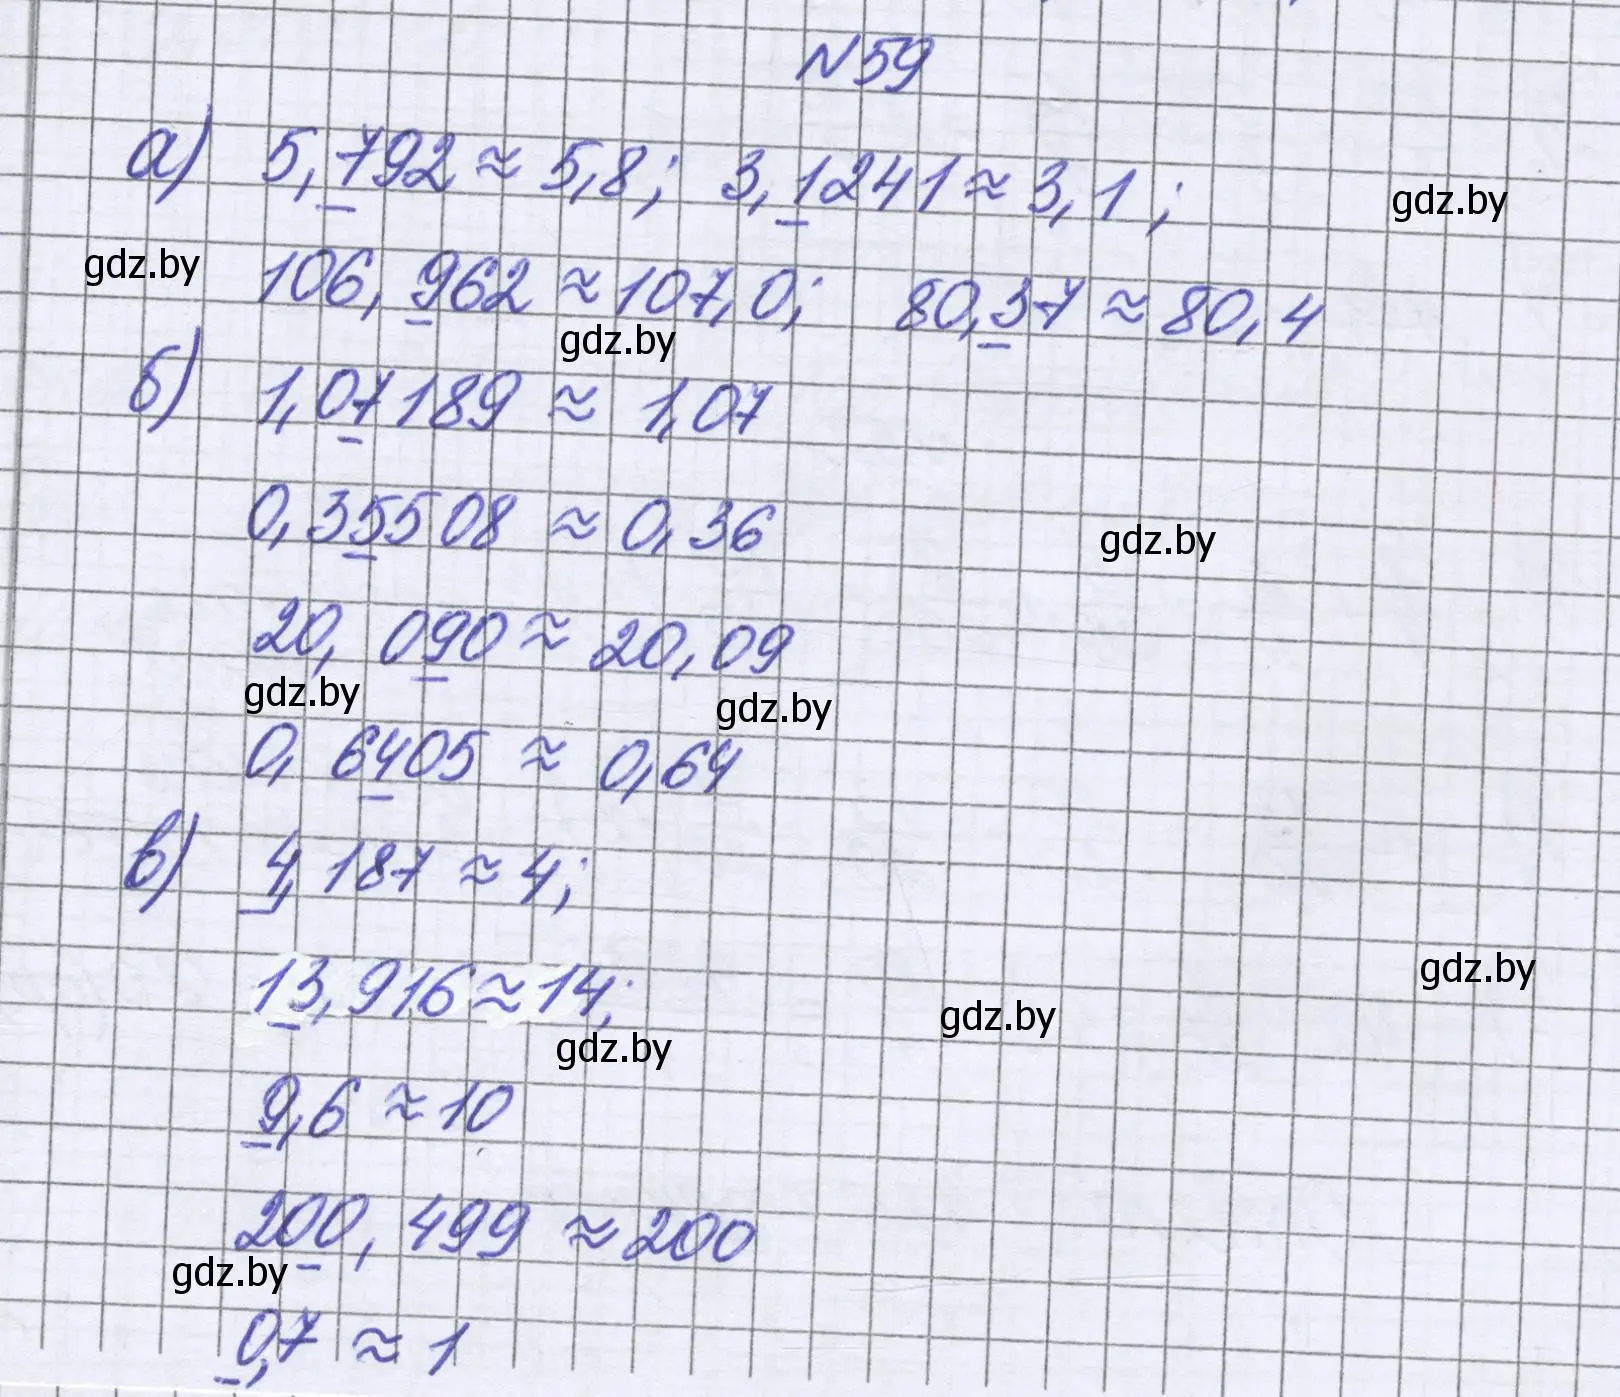 N59
а) 5,792 ≈ 5,8; 3,1241 ≈ 3,1;
gdz.by
gdz.by
106,962 ≈ 107,0; 80,37 ≈ 80,4
gdz.by
б) 1,07189 ≈ 1,07
0,35508 ≈ 0,36
gdz.by
20,090 ≈ 20,09
gdz.by
gdz.by
0,6405 ≈ 0,64
в) 4,187 ≈ 4;
13,916 ≈ 14;
gdz.by
gdz.by
gdz.by
9,6 ≈ 10
200,499 ≈ 200
gdz.by
0,7 ≈ 1